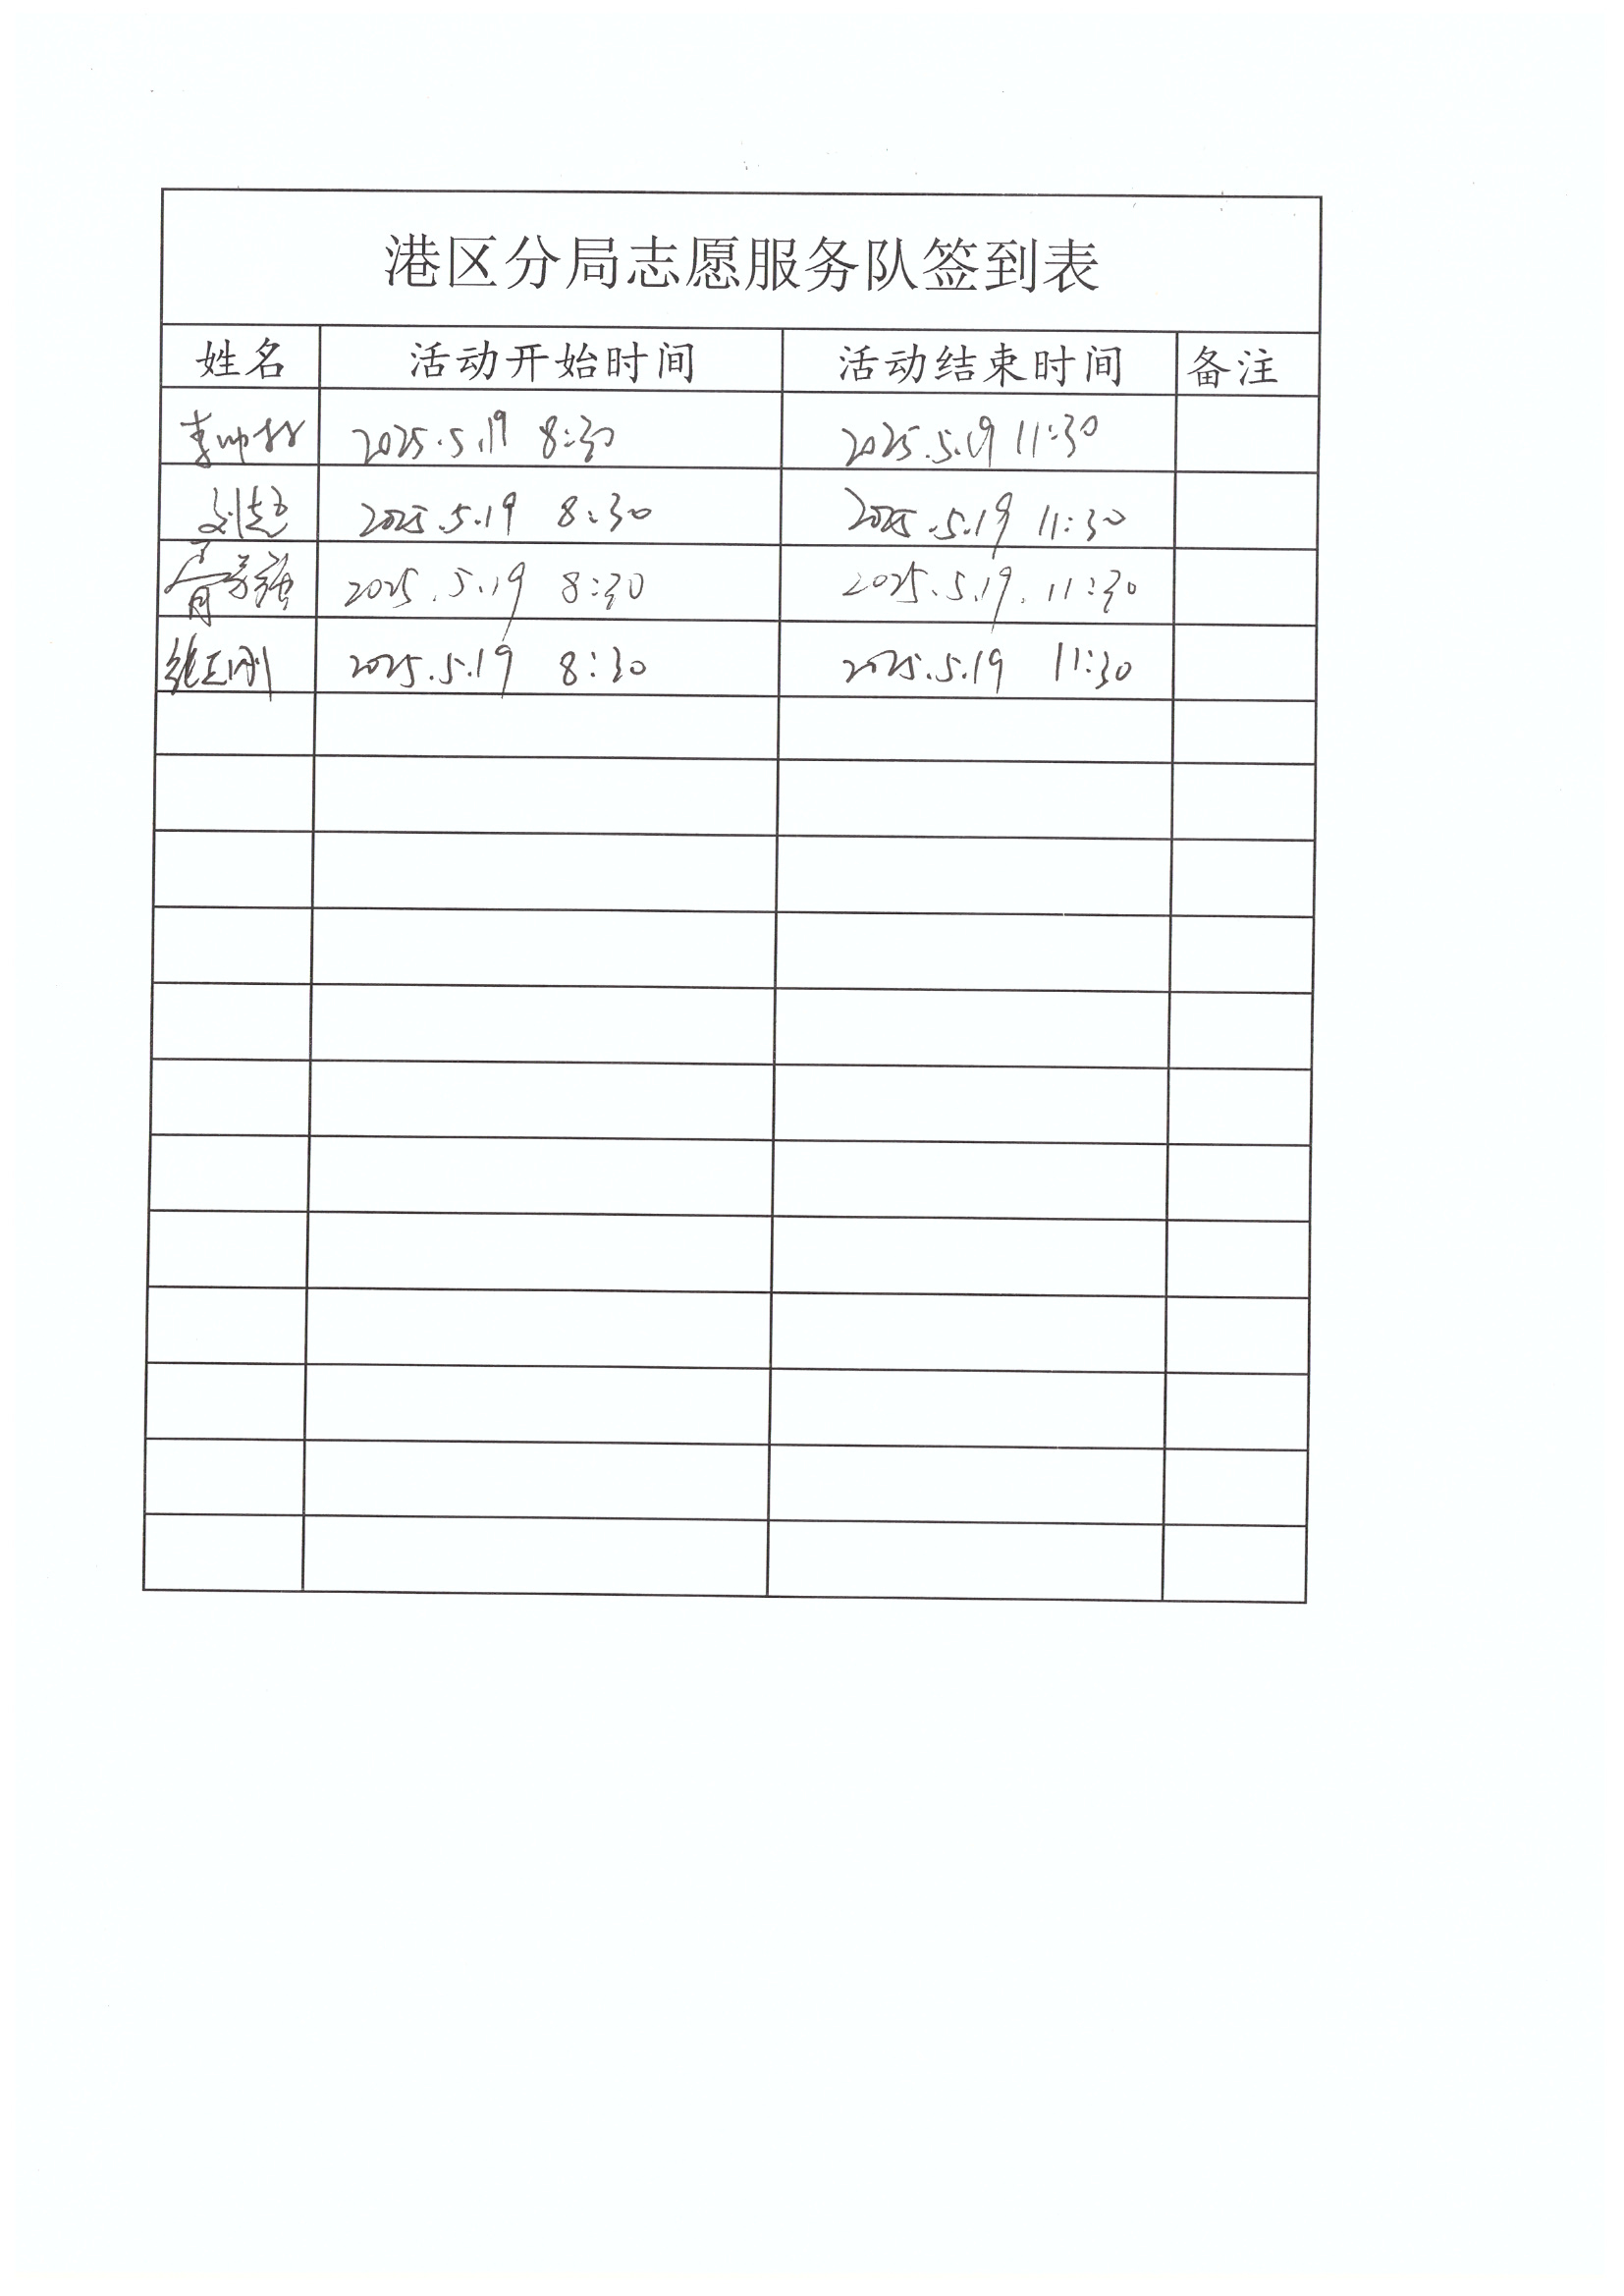 港区分局志愿服务队签到表
姓名 活动开始时间 活动结束时间 备注
李帅 2025.5.19 8:30 2025.5.19 11:30
刘超 2025.5.19 8:30 2025.5.19 11:30
2025.5.19 8:30 2025.5.19. 11:30
张正刚 2025.5.19 8:30 2025.5.19 11:30